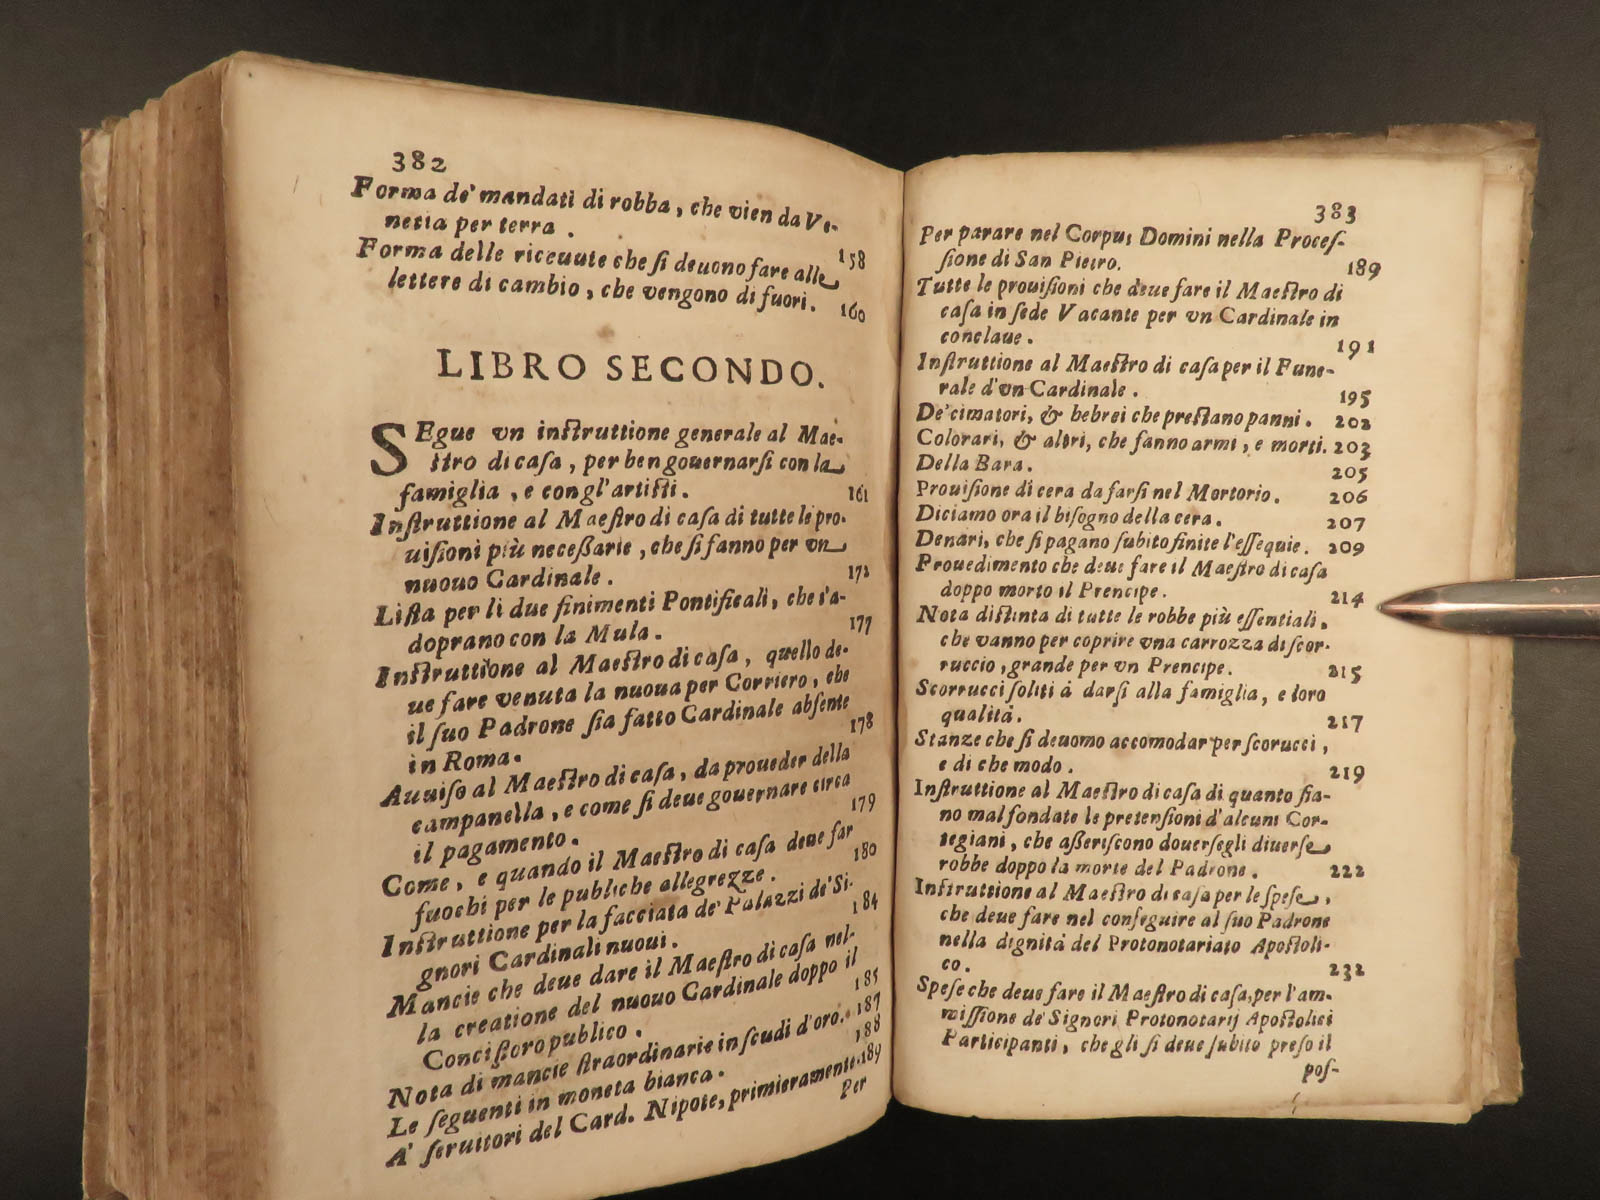 382
Forma de' mandati di robba, che vien da Ve-
netia per terra. 158
Forma delle riceuute che ſi deuono fare alle
lettere di cambio, che vengono di fuori. 160
LIBRO SECONDO.
SEgue vn inſtruttione generale al Mae-
ſtro di caſa, per ben gouernarſi con la
famiglia, e con gl'artiſti. 161
Inſtruttione al Maeſtro di caſa di tutte le pro-
uiſioni più neceßarie, che ſi fanno per vn
nuouo Cardinale. 172
Liſta per li due finimenti Pontificali, che s'a-
doprano con la Mula. 177
Inſtruttione al Maeſtro di caſa, quello de-
ue fare venuta la nuoua per Corriero, che
il ſuo Padrone ſia fatto Cardinale abſente
in Roma. 178
Auuiſo al Maeſtro di caſa, da proueder della
campanella, e come ſi deue gouernare circa
il pagamento. 179
Come, e quando il Maeſtro di caſa deue far
fuochi per le publiche allegrezze. 180
Inſtruttione per la facciata de' Palazzi de' Si-
gnori Cardinali nuoui. 184
Mancie che deue dare il Maeſtro di caſa nel-
la creatione del nuouo Cardinale doppo il
Conciſtoro publico. 185
Nota di mancie ſtraordinarie in ſcudi d'oro. 187
Le ſeguenti in moneta bianca. 188
A' ſeruitori del Card. Nipote, primieramente. 189
Per
383
Per parare nel Corpus Domini nella Proceſ-
ſione di San Pietro. 189
Tutte le prouiſioni che deue fare il Maeſtro di
caſa in ſede Vacante per vn Cardinale in
conclaue. 191
Inſtruttione al Maeſtro di caſa per il Fune-
rale d'vn Cardinale. 195
De' cimatori, & hebrei che preſtano panni. 202
Colorari, & altri, che fanno armi, e morti. 203
Della Bara. 205
Prouiſione di cera da farſi nel Mortorio. 206
Diciamo ora il biſogno della cera. 207
Denari, che ſi pagano ſubito finite l'eſſequie. 209
Prouedimento che deue fare il Maeſtro di caſa
doppo morto il Prencipe. 214
Nota diſtinta di tutte le robbe più eſſentiali,
che vanno per coprire vna carrozza di ſcor-
ruccio, grande per vn Prencipe. 215
Scorrucci ſoliti à darſi alla famiglia, e loro
qualità. 217
Stanze che ſi deuomo accomodar per ſcorucci,
e di che modo. 219
Inſtruttione al Maeſtro di caſa di quanto ſia-
no mal fondate le pretenſioni d'alcuni Cor-
tegiani, che aßeriſcono douerſegli diuerſe
robbe doppo la morte del Padrone. 222
Inſtruttione al Maeſtro di caſa per le ſpeſe,
che deue fare nel conſeguire al ſuo Padrone
nella dignità del Protonotariato Apoſtoli-
co. 232
Speſe che deue fare il Maeſtro di caſa, per l'am-
miſſione de' Signori Protonotarij Apoſtolici
Participanti, che gli ſi deue ſubito preſo il
poſ-